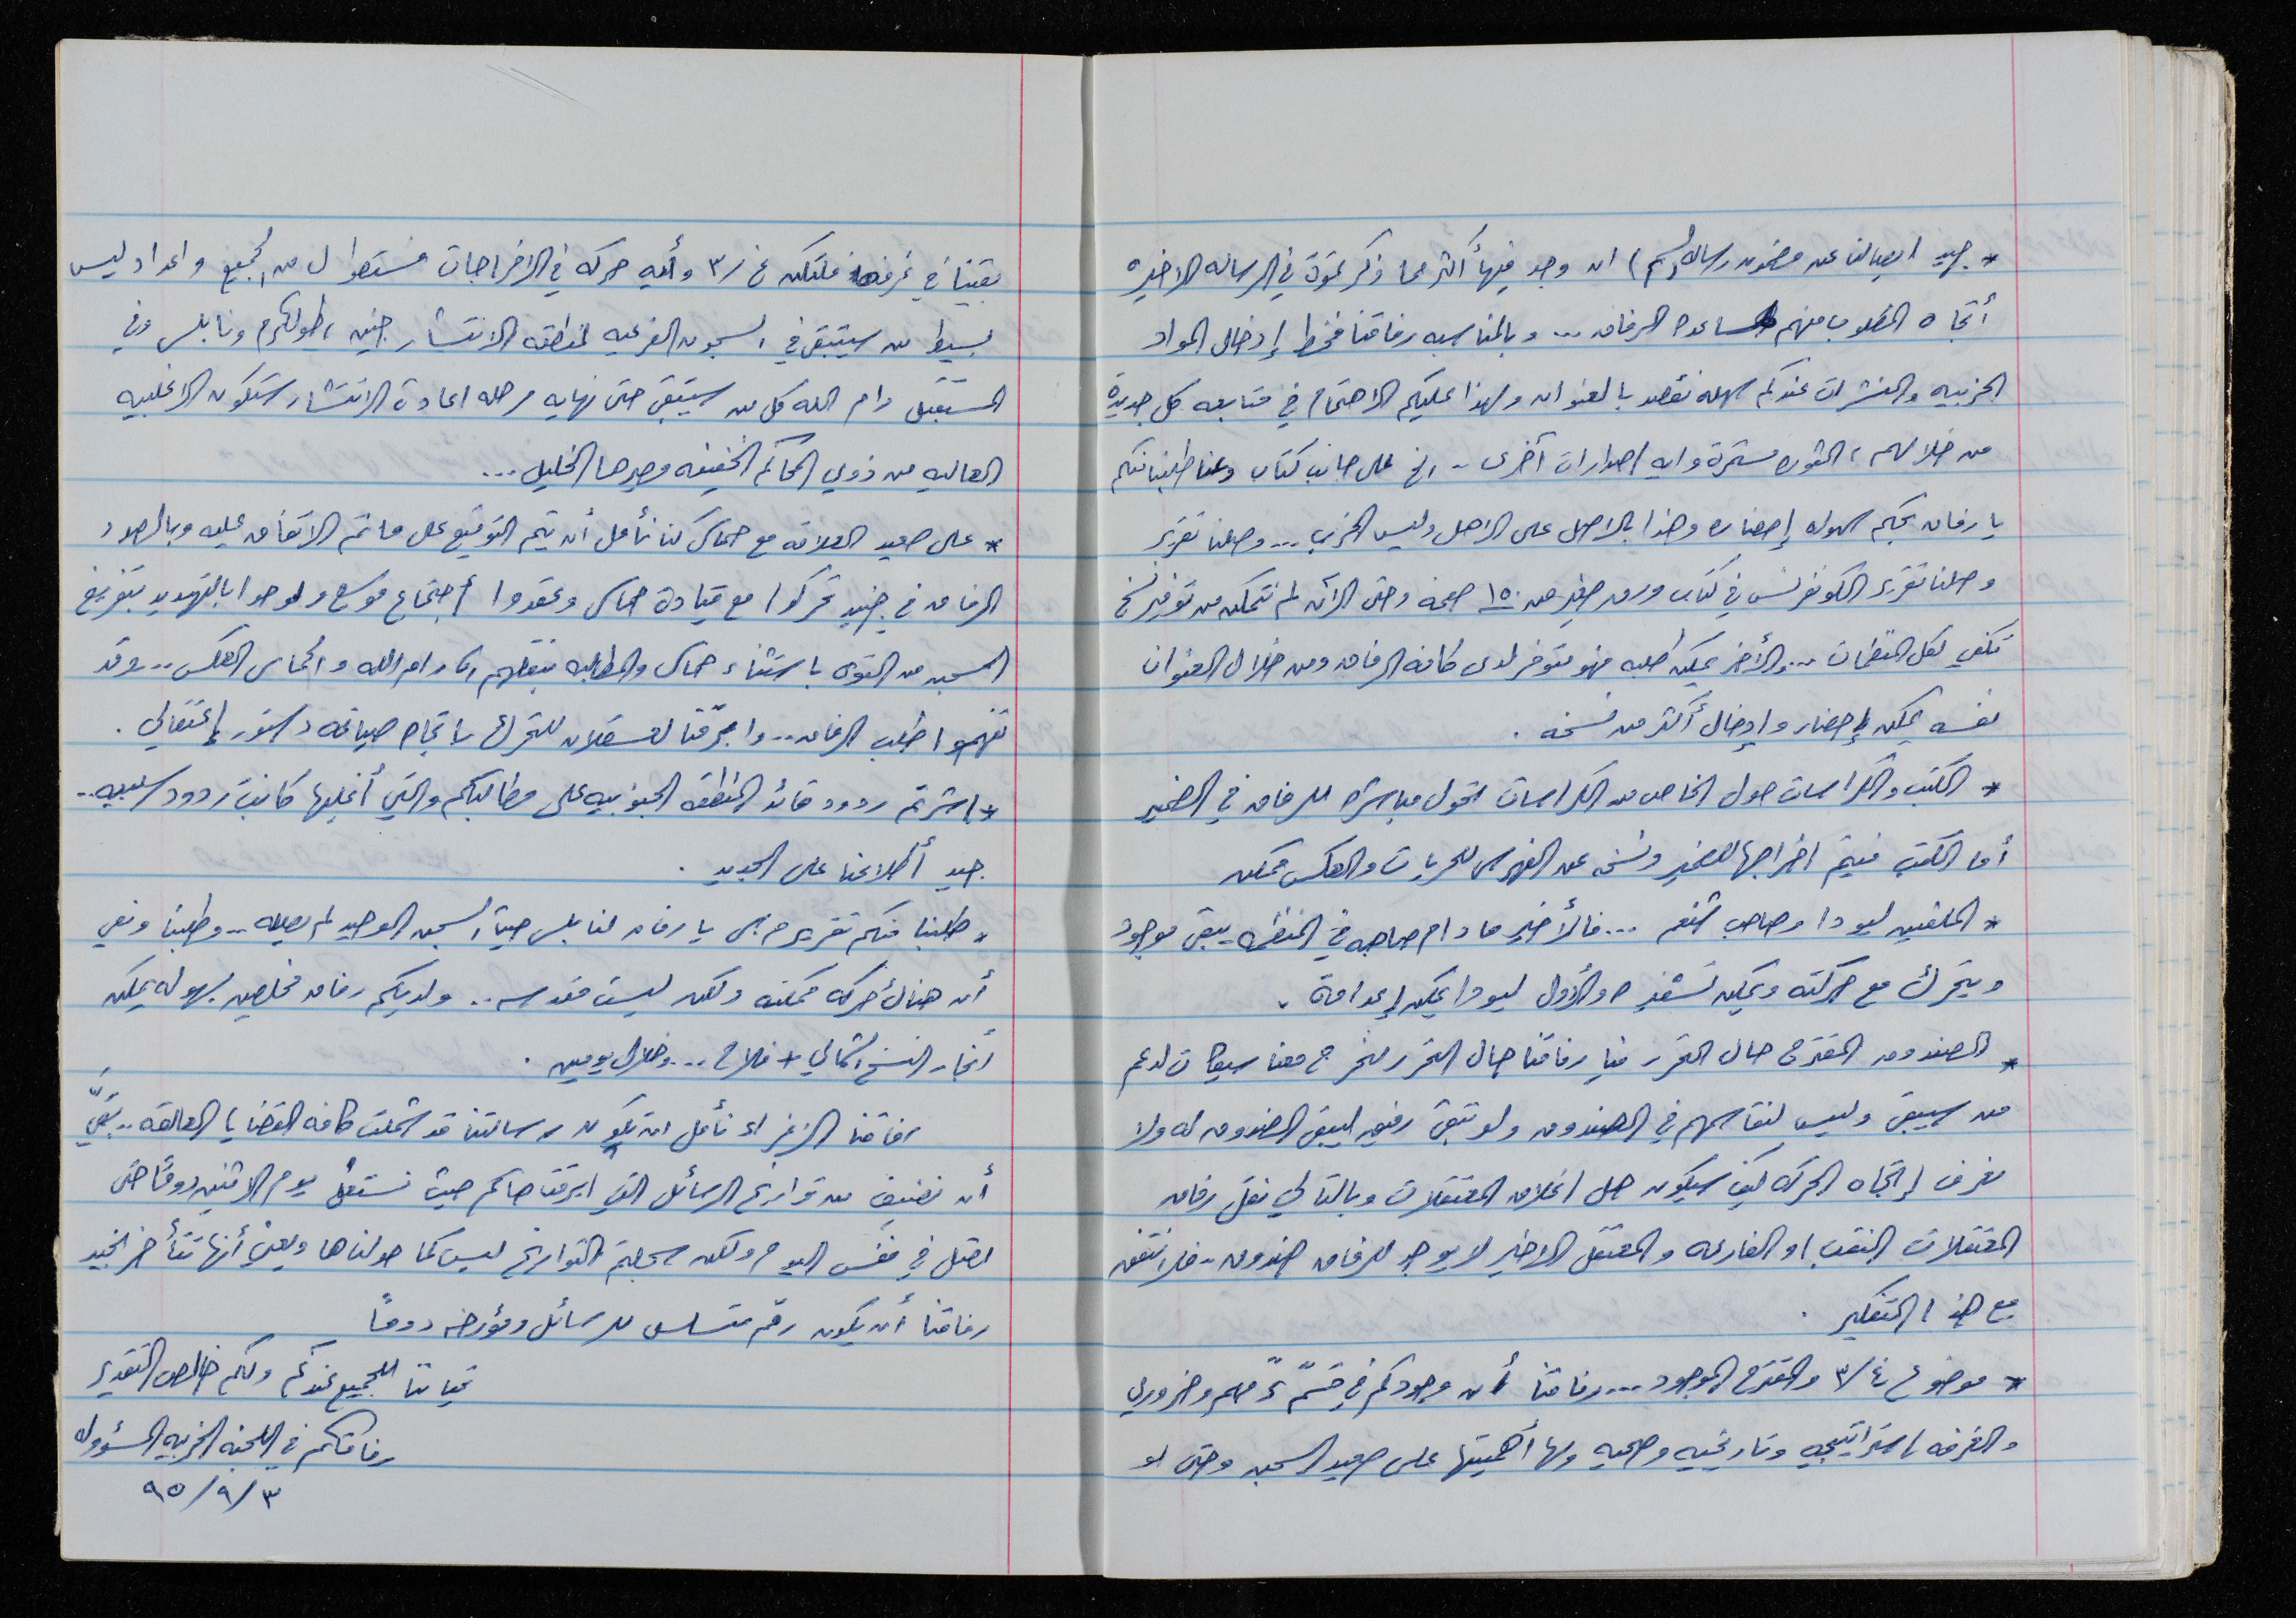 * جيد ايصالنا عن مضمون رساله (نسيم) ان وجد فيها أكثر مما ذكرتموه في الرساله الاخيره
أتجاه المطلوب منهم مساعدة الرفاق ... وبالمناسبه رفاقنا فخط إدخال المواد
الحزبيه والنشرات عندكم سهله نقصد بالعنوان ولهذا عليكم الاهتمام في متابعه كل جديدة
من خلالهم ، الثوره مستمرة وايه اصدارات أخرى .. الخ على جانب كتاب وعنا طلبنا منكم
يا رفاق بحكم سهوله إحضاره وهذا بالاصل على الاهل وليس الحزب ... وصلنا تقرير
وصلنا تقرير الكونفرنس في كتاب ورق صغير من ١٥٠ صفحه وحتى الآن لم نتمكن من توفير نسخ
تكفي لكل المنظمات ... والأخر يمكن طلبه فهو متوفر لدى كافة الرفاق ومن خلال العنوان
نفسه يمكن إحضار وإدخال أكثر من نسخه .
* الكتب والكراسات حول الخاص من الكراسات تحول مباشره للرفاق في الضمير
أما الكتب فيتم اخراجها للضمير ونسخه عن الفهرس للحريات والعكس ممكن
* الملفين ليودا وصاحب ... فالأخير ما دام صاحبه في المنظمه يبقى موجود
ويتحرك مع حركته ويمكن تشفيره والأول ليودا يمكن إعدامة .
* الصندوق المقترح حال التحرر فيا رفاقنا حال التحرر لنخرج معنا سيكات لدعم
من سيبقى وليس لنتقاسمهم في الصندوق ولو تبقى رفيق ليبقى الصندوق له ولا
نعرف إتجاه الحركه كيف سيكون هل اغلاق المعتقلات وبالتالي نقل رفاق
المعتقلات النقب او الفارعه والمعتقل الاخير لا يوجد للرفاق صندوق .. فلا نتفق
مع هذا التفكير .
* موضوع غ/٣ والمقترح الموجود ... رفاقنا أن وجودكم في قسم ٣ مهم وضروري
والغرفه استراتيجيه وتاريخيه وصحيه ولها أهميتها على صعيد السجن وحتى لو
بقينا في غرفه فلتكن غ/٣ وأيه حركه في الافراجات فستطول من الجميع واعداد ليس
بسيط من سيتبقى في السجون الفرعيه لمنطقه الانتشار جنين ، طولكرم ونابلس وفي
المستقبل رام الله كل من سيتبقى حتى نهايه مرحله اعادة الانتشار ستكون الاغلبيه
العاليه من ذوي المحاكم الخفيفه وغيرها الخليل ...
* على صعيد العلاقه مع حماس كنا نأمل أن يتم التوقيع على ما تم الاتفاق عليه وبالصدد
الرفاق في جنيد تحركوا مع قيادة حماس وعقدوا أجتماع موسع ولوحوا بالتهديد بتفريغ
السجن من القوى باستثناء حماس والمطالبه بنقلهم الى رام الله والحماس العكس .. وقد
تفهموا طلب الرفاق .. وابرقنا لعسقلان للتحرك باتجاه صياغه دستور إعتقالي .
* اشرتم ردود قائد المنطقه الجنوبيه على مطالبكم والتي أغلبها كانت ردود سلبيه ..
جيد أطلاعنا على الجديد .
* طلبنا منكم تقرير حزبي يا رفاق لنابلس حيث السجن الوحيد لم يصله .. وطلبنا ونعي
أن هناك حركه ممكنه ولكن ليست مقدسه .. ولديكم رفاق مخلصين بسهوله يمكن
أنجاز النسخ الثمالي + فلاح ... وخلال يومين .
رفاقنا الاعزاء نأمل ان تكون رسالتنا قد شملت كافه القضايا العالقه .. بقيَّ
أن نضيف من تواريخ الرسائل التي ابرقناها لكم حيث نستغل يوم الاثنين دوماً حتى
تصل في نفس اليوم ولكن سجلتم التواريخ ليس كما حولناها ويعني أنها تتأخر لجنيد
رفاقنا أن يكون رقم متسلسل للرسائل ومؤرخه دوماً
تحياتنا للجميع عندكم ولكم خالص التقدير
رفاقكم في اللجنه الحزبيه المسؤوله
٩٥/٩/٣